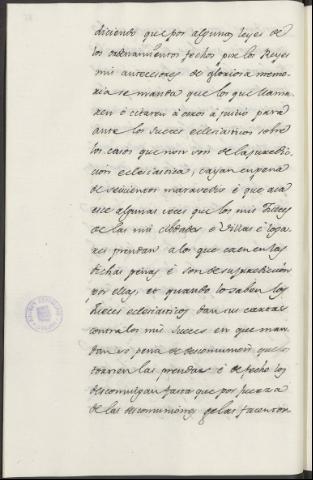 diciendo que por algunas leyes de
los ordenamientos fechos por los Reyes
mis antecesores de gloriosa memo-
ria se manda que los que llama
ren ó citaren á otros á juicio para
ante los Jueces eclesiasticos sobre
los casos que non son de la juredic-
cion eclesiastica, cayan en pena
de seiscientos maravedis é que aca
esce algunas veces que los mis Jueces
de las mis cibdades é Villas é loga
res prendan a los que caen en las
dichas penas é son de su jurediccion
por ellas, et quando lo saben los
Jueces eclesiasticos dan sus cartas
contra los mis Jueces en que man
dan so pena de descomunion que les
tornen las prendas é de fecho los
descomulgan fasta que por fuerza
de las descomuniones gelas facen tor